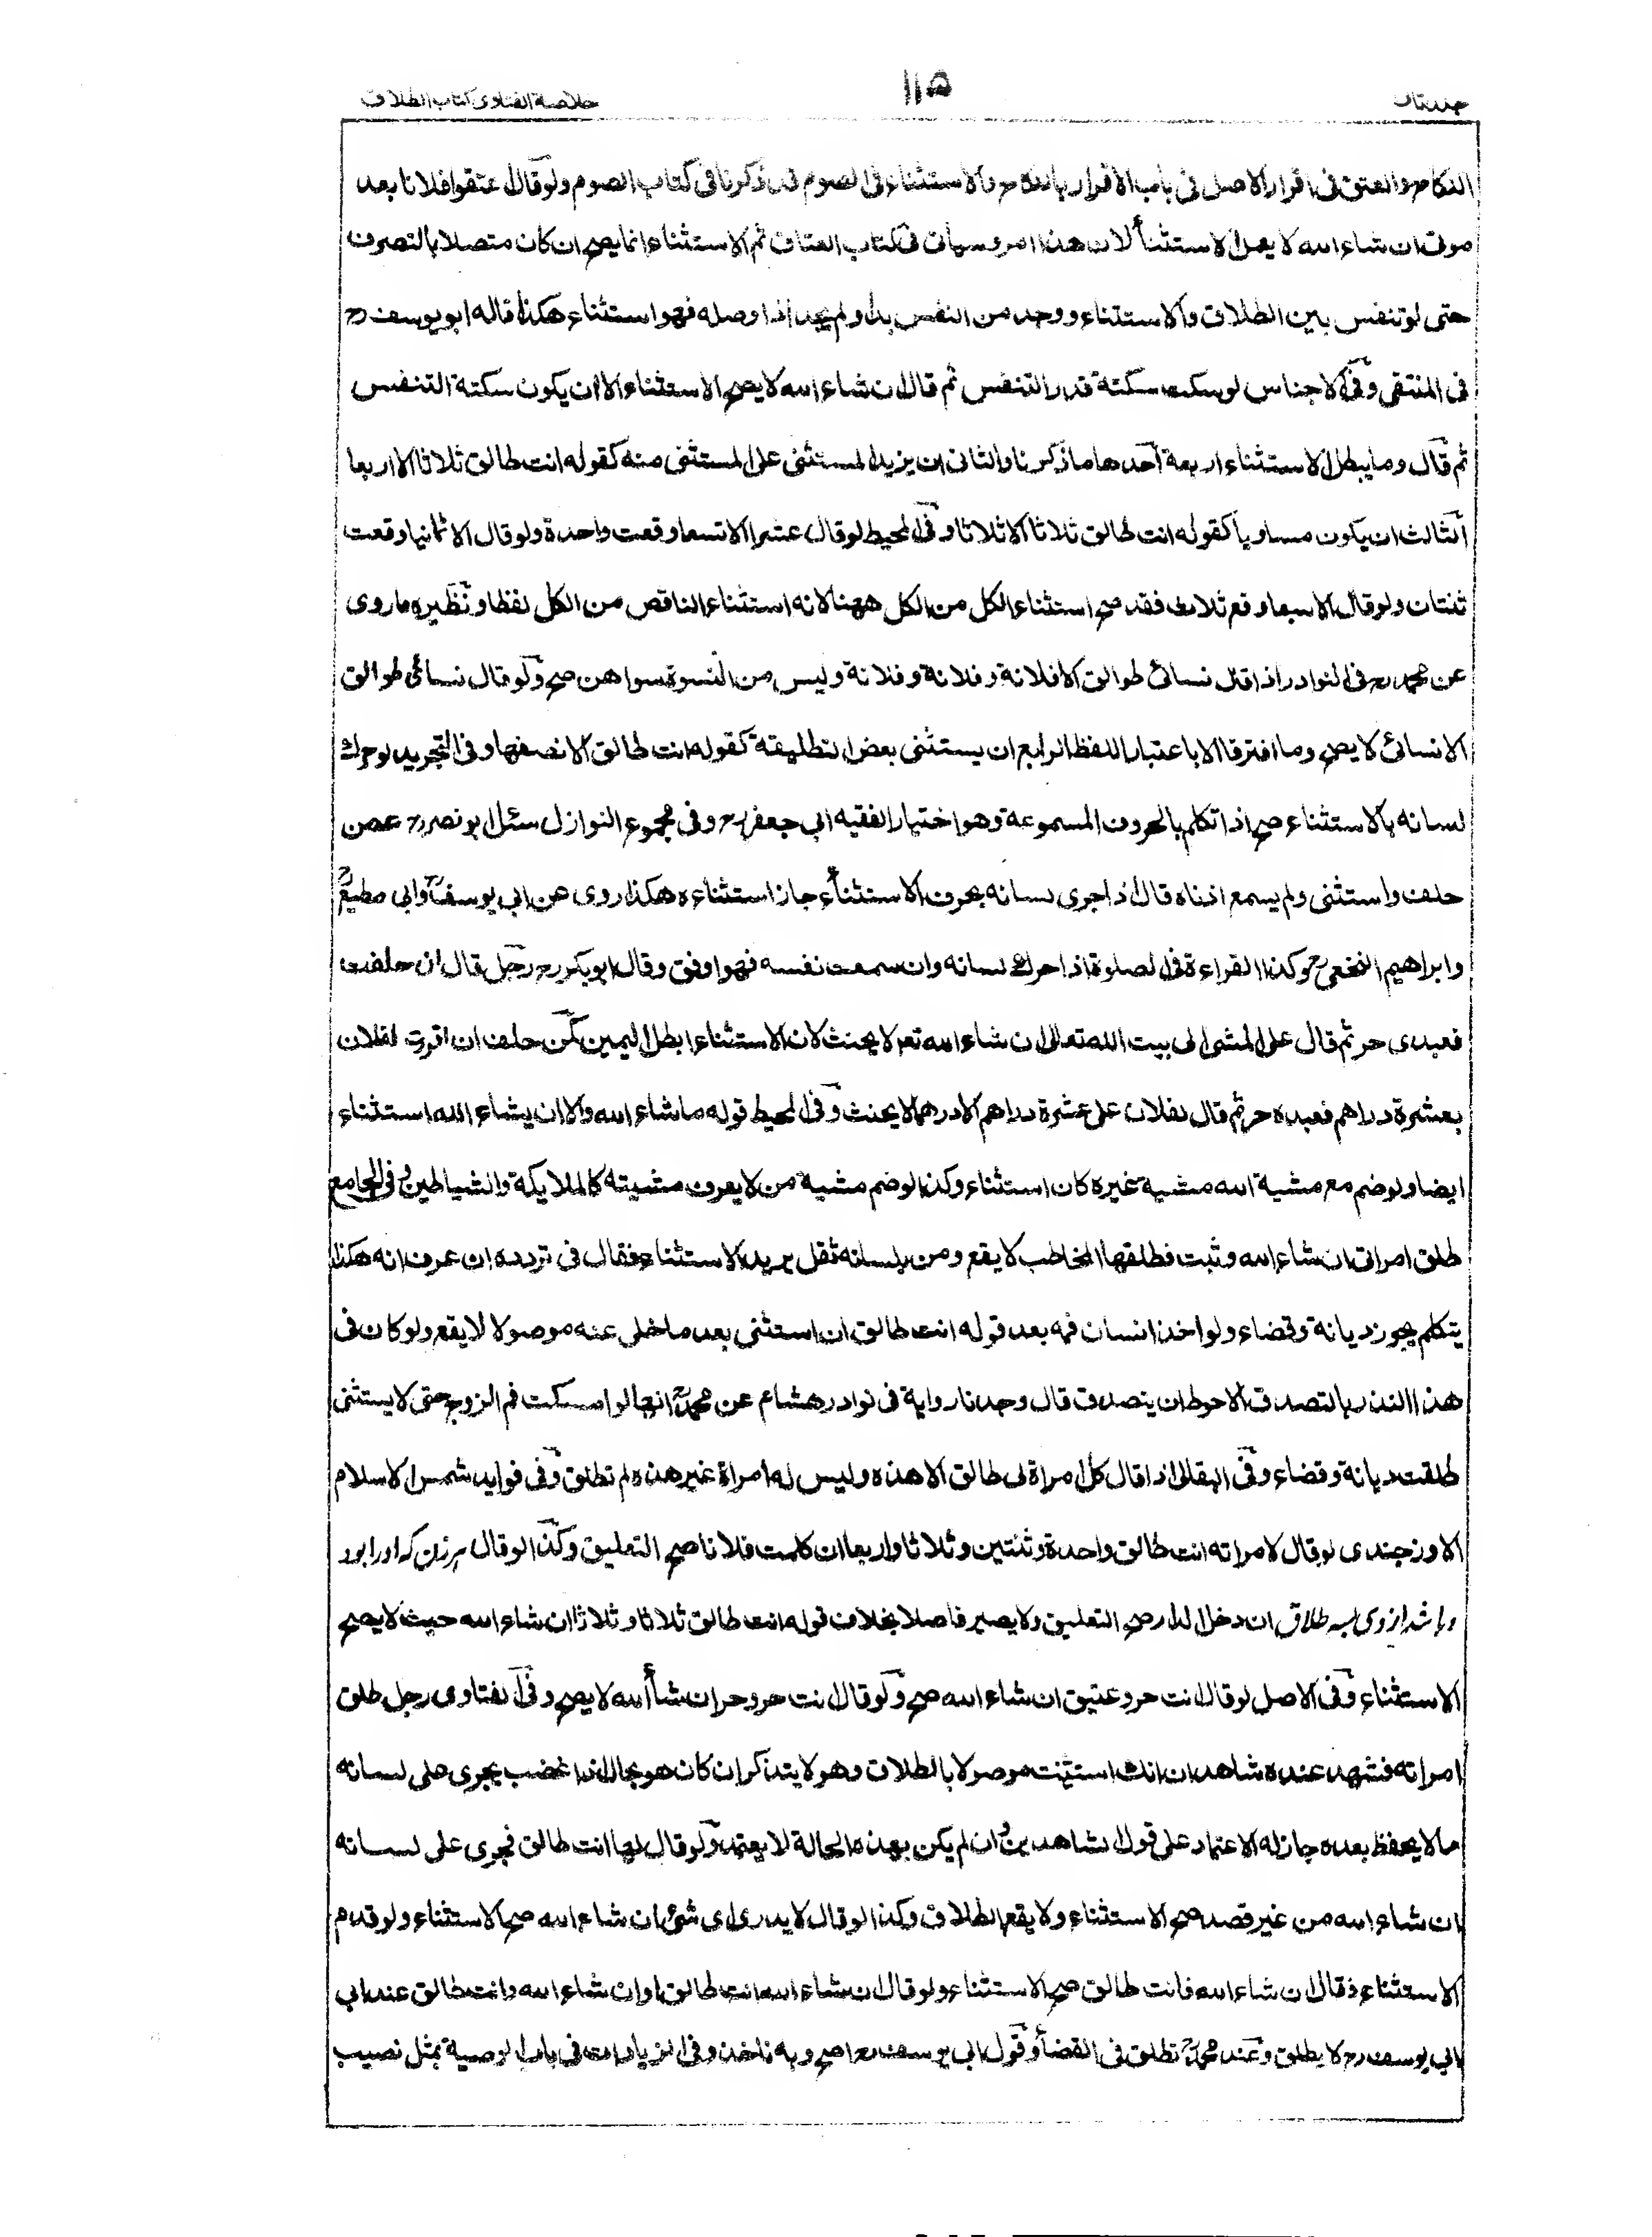 خلاصة الفتاوى كتاب الطلاق
١١٥
النكاح والعتق فى اقرار الاصل فى باب الاقرار بالنكاح والاستثناء فى الصوم قد ذكرنا فى كتاب الصوم ولو قال عتقوا فلانا بعد
موتى ان شاء الله لا يعمل الاستثنأ لان هذا امر وسيأتى فى كتاب العتاق ثم الاستثناء انما يصح ان كان متصلا بالتصرف
حتى لو تنفس بين الطلاق والاستثناء ووجد من النفس بدا ولم يجد اذا وصله فهو استثناء هكذا قاله ابو يوسف رح
فى المنتقى وفى الاجناس لو سكت سكتة قدر التنفس ثم قال ان شاء الله لا يصح الاستثناء الا ان يكون سكتة التنفس
ثم قال وما يبطل الاستثناء اربعة احدها ما ذكرنا والثانى ان يزيد المستثنى على المستثنى منه كقوله انت طالق ثلاثا الا اربعا
الثالث ان يكون مساويا كقوله انت طالق ثلاثا الا ثلاثا وفى المحيط لو قال عشرا الا تسعا وقعت واحدة ولو قال الا ثمانيا وقعت
ثنتان ولو قال الا سبعا وقع ثلاث فقد صح استثناء الكل من الكل ههنا لانه استثناء الناقص من الكل لفظا ونظيره ما روى
عن محمد رح فى النوادر اذا قال نسائى طوالق الا فلانة وفلانة وفلانة وليس من النسوة سواهن صح ولو قال نسائى طوالق
الا نسائى لا يصح وما افترقا الا باعتبار اللفظ الرابع ان يستثنى بعض التطليقة كقوله انت طالق الا نصفها وفى التجريد لو حرك
لسانه بالاستثناء صح اذا تكلم بالحروف المسموعة وهو اختيار الفقيه ابي جعفر رح وفى مجموع النوازل سئل ابو نصر رح عمن
حلف واستثنى ولم يسمع اذناه قال اذا جرى لسانه بحرف الاستثناء جاز استثناءه هكذا روى عن ابي يوسف رح وابي مطيع رح
وابراهيم النخعى رح وكذا القراءة فى الصلوة اذا حرك لسانه وان سمعت نفسه فهو اوفق وقال ابو بكر رح رجل قال ان حلفت
فعبدى حر ثم قال على المشى الى بيت الله تعالى ان شاء الله تعم لا يحنث لان الاستثناء ابطل اليمين كمن حلف ان اقررت لفلان
بعشرة دراهم فعبده حر ثم قال لفلان على عشرة دراهم الا درهما لا يحنث وفى المحيط قوله ما شاء الله والا ان يشاء الله استثناء
ايضا ولو ضم مع مشية الله مشية غيره كان استثناء وكذا لو ضم مشية من لا يعرف مشيته كالملايكة والشياطين وفى الجامع
طلق امراتى ان شاء الله وثبت فطلقها المخاطب لا يقع ومن بلسانه ثقل يريد الاستثناء فقال فى تردده ان عرف انه هكذا
يتكلم يجوز ديانة وقضاء ولو اخذ انسان فمه بعد قوله انت طالق ان استثنى بعد ما خلى عنه موصولا لا يقع ولو كان فى
هذا النذر بالتصدق الاحوط ان يتصدق قال وجدنا رواية فى نوادر هشام عن محمد رح انها لو امسكت فم الزوج حتى لا يستثنى
طلقت ديانة وقضاء وفى البقالى اذا قال كل امراة لى طالق الا هذه وليس له امراة غير هذه لم تطلق وفى فوايد شمس الاسلام
الاوزجندى لو قال لامراته انت طالق واحدة وثنتين وثلاثا واربعا ان كلمت فلانا صح التعليق وكذا لو قال هر زن كه اورا بود
وباشد ازوى بسه طلاق ان دخل الدار صح التعليق ولا يصير فاصلا بخلاف قوله انت طالق ثلاثا وثلاثا ان شاء الله حيث لا يصح
الاستثناء وفى الاصل لو قال انت حر وعتيق ان شاء الله صح ولو قال انت حر وحر ان شأ الله لا يصح وفى الفتاوى رجل طلق
امراته فشهد عنده شاهدان انك استثنيت موصولا بالطلاق وهو لا يتذكر ان كان هو بحال اذا غضب يجرى على لسانه
ما لا يحفظ بعده جاز له الاعتماد على قول الشاهدين وان لم يكن بهذه الحالة لا يعتمد ولو قال لها انت طالق فجرى على لسانه
ان شاء الله من غير قصد صح الاستثناء ولا يقع الطلاق وكذا لو قال لا يدرى اى شئ ان شاء الله صح الاستثناء ولو قدم
الاستثناء فقال ان شاء الله فانت طالق صح الاستثناء ولو قال ان شاء الله انت طالق او ان شاء الله وانت طالق عند ابي
ابي يوسف رح لا يطلق وعند محمد رح تطلق فى القضأ وقول ابي يوسف رح اصح وبه ناخذ وفى الزيادات فى باب الوصية بمثل نصيب